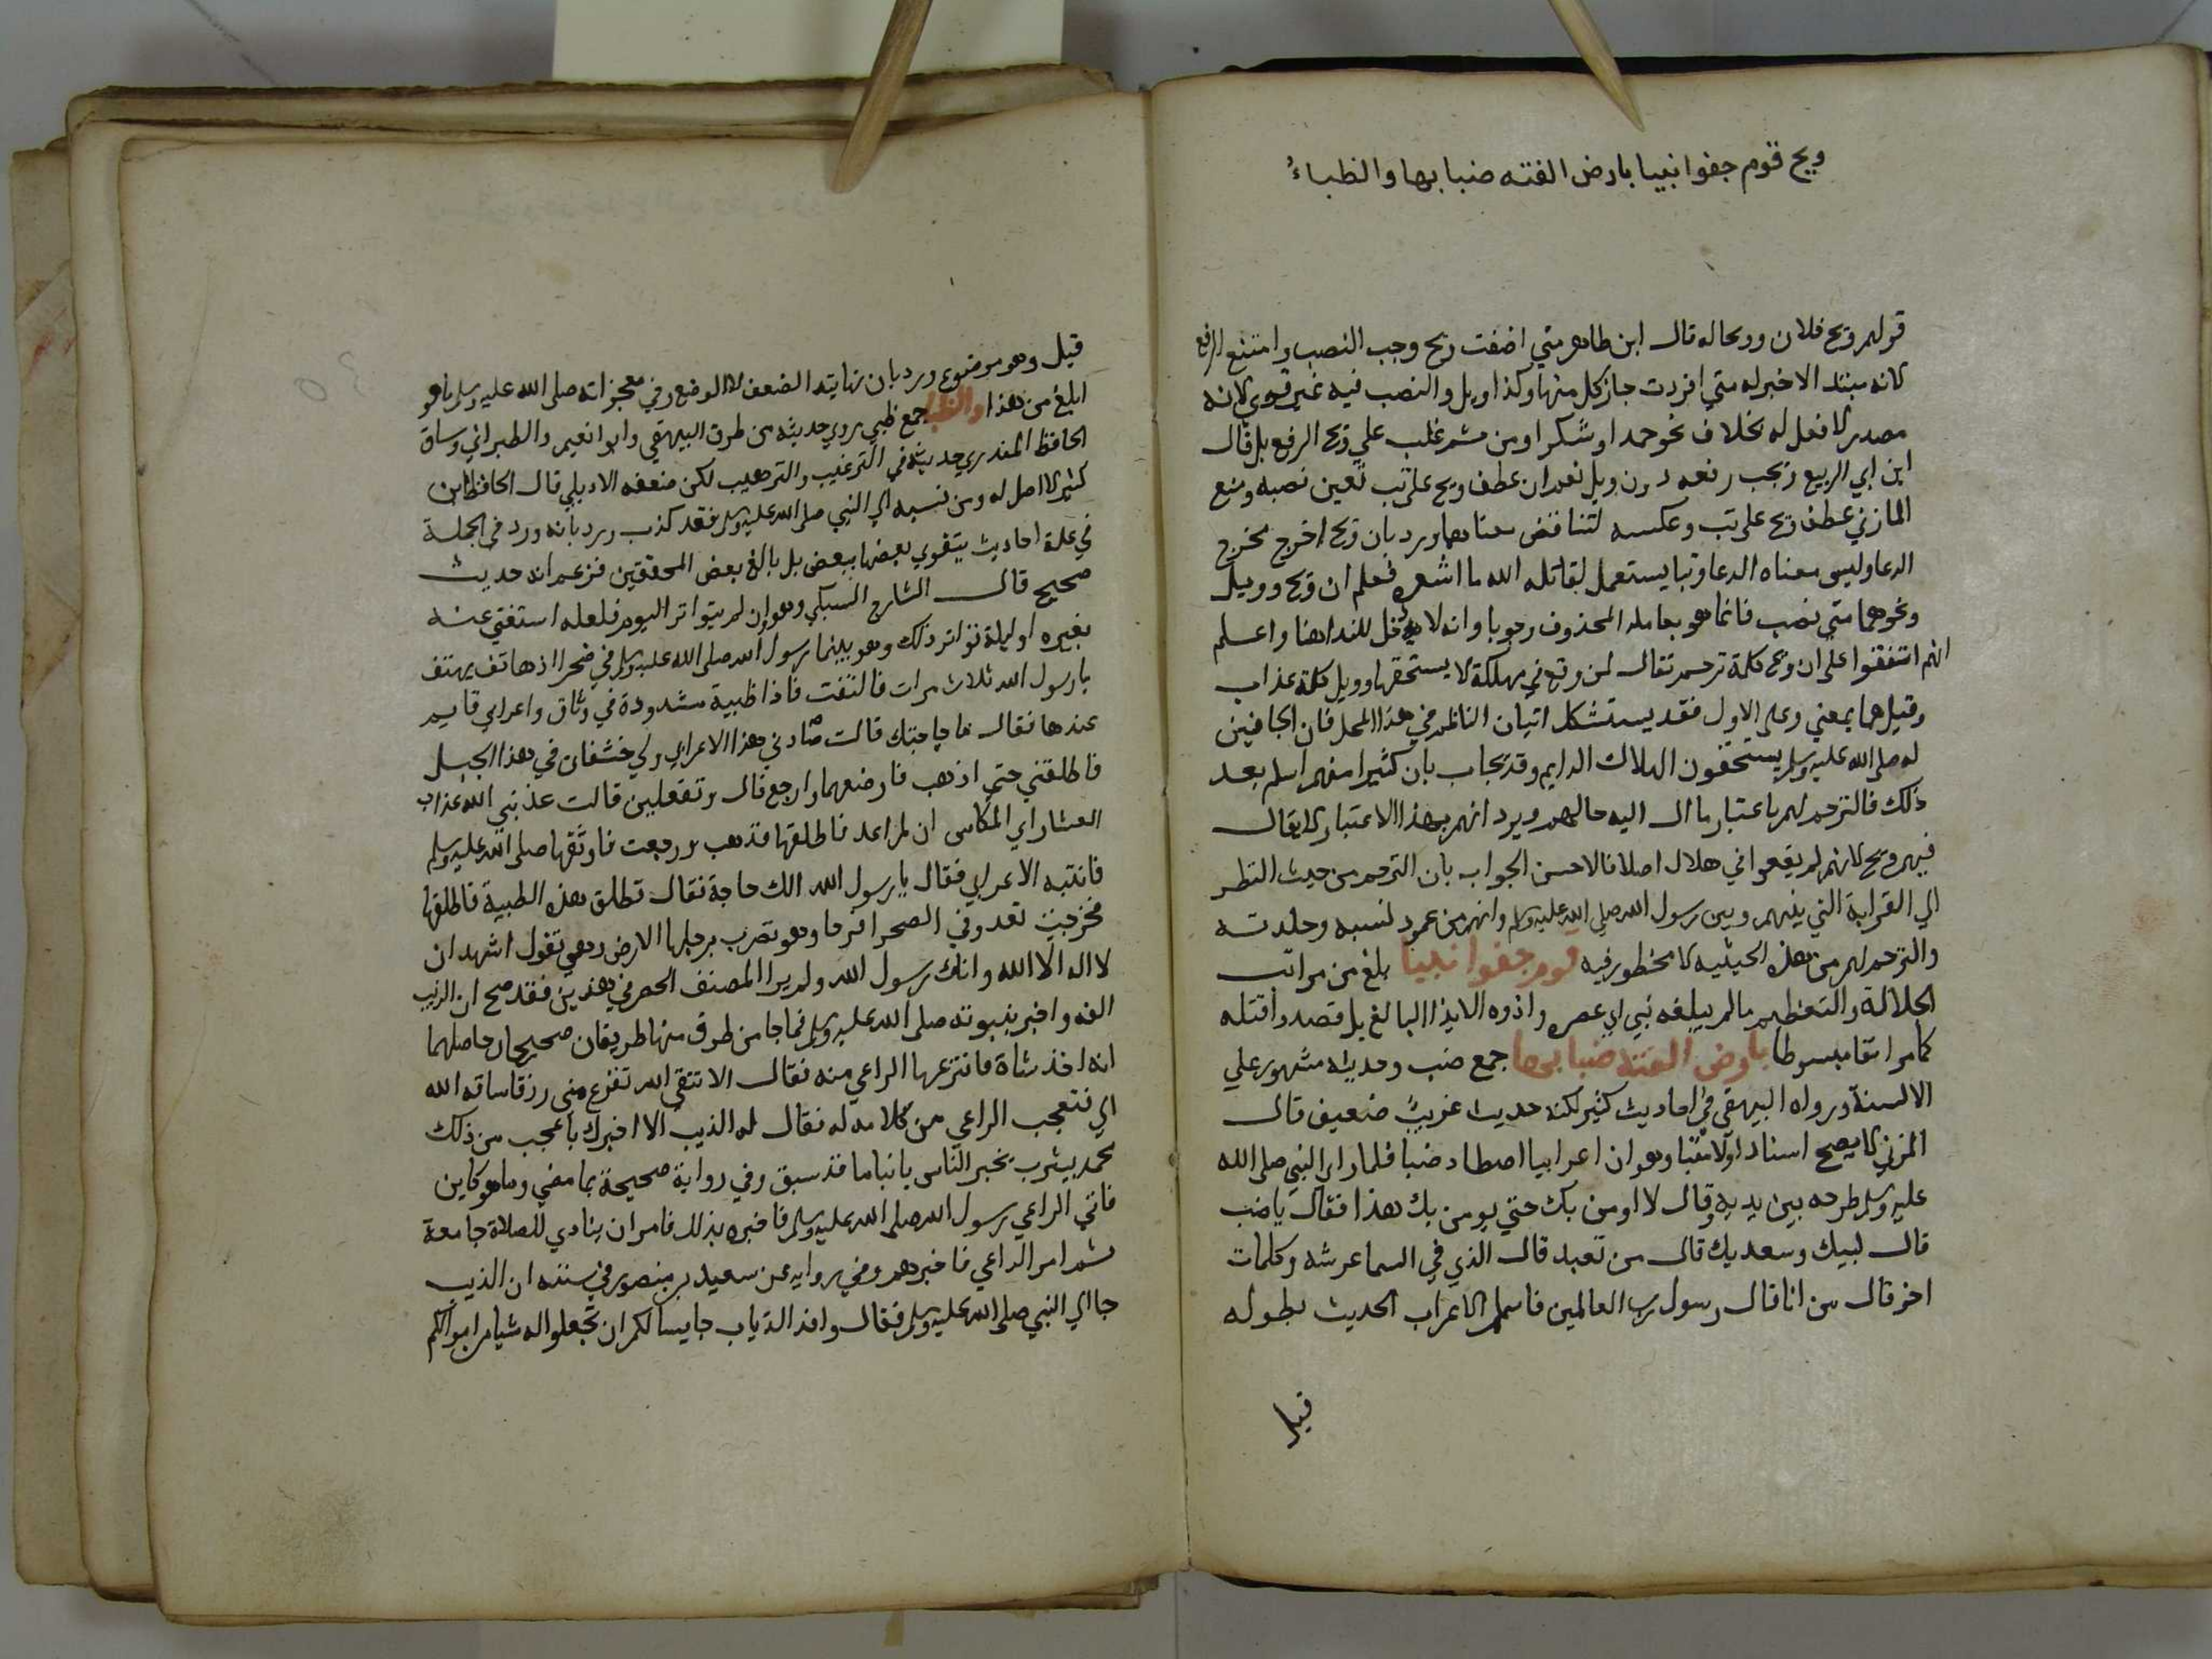 ويح قوم جفوا نبيا بارض الفته ضبابها والظباءُ
قولهم ويح فلان وويحا له قال ابن طاهر متي اضفت ويح وجب النصب وامتنع الرفع
لانه مبتدا لا خبر له متي افردت جاز كل منها وكذا ويل والنصب فيه غير قوي لانه
مصدر لا فعل له بخلاف نحو حمدا وشكرا ومن ثم غلب علي ويح الرفع بل قال
ابن ابي الربيع يجب رفعه دون ويل نعم ان عطف ويح علي تب تعين نصبه ومنع
المازني عطف ويح علي تب وعكسه لتناقض معناهما ويرد بان ويح اخرج مخرج
الدعا وليس معناه الدعا وتبا يستعمل لقاتله الله ما اشعره فعلم ان ويح وويل
ونحوهما متي نصب فانما هو بعامله المحذوف وجوبا وانه لا يدخل للندا هنا واعلم
انهم اتفقوا علي ان ويح كلمة ترحم تقال لمن وقع في مهلكة لا يستحقها وويل كلمة عذاب
وقيل هما بمعني وعلي الاول فقد يستشكل اتيان الناظم في هذا المحل فان الجافين
له صلي الله عليه وسلم يستحقون الهلاك الدايم وقد يجاب بان كثيرا منهم اسلم بعد
ذلك فالترحم لهم باعتبار ما ال اليه حالهم ويرد انهم بهذا الاعتبار لا يقال
فيهم ويح لانهم لم يقعوا في هلال اصلا فالاحسن الجواب بان الترحم من حيث النظر
الي القرابة التي بينهم وبين رسول الله صلي الله عليه وسلم وانهم من عمود نسبه وجلدته
والترحم لهم من هذه الحيثيه لا محظور فيه قوم جفوا نبيا بلغ من مراتب
الجلالة والتعظيم ما لم يبلغه نبي اي عصره واذوه الايذا البالغ بل قصدوا قتله
كما مر انفا مبسوطا بارض الفته ضبابها جمع ضب وحديثه مشهور علي
الالسنة ورواه البيهقي في احاديث كثير لكنه حديث غريب ضعيف قال
المزني لا يصح اسنادا ولا متنا وهو ان اعرابيا اصطاد ضبا فلما راي النبي صلي الله
عليه وسلم طرحه بين يديه وقال لا اومن بك حتي يومن بك هذا فقال يا ضب
قال لبيك وسعديك قال من تعبد قال الذي في السما عرشه وكلمات
اخر قال من انا قال رسول رب العالمين فاسلم الاعراب الحديث بطوله
قيل
قيل وهو موضوع ورد بان نهايته الضعف لا الوضع وفي معجزاته صلي الله عليه وسلم ما هو
ابلغ من هذا والظبا جمع ظبي روي حديثه من طرق البيهقي وابو نعيم والطبراني وساق
الحافظ المنذري حديثه في الترغيب والترهيب لكن ضعفه الاردبيلي قال الحافظ ابن
كثير لا اصل له ومن نسبه الي النبي صلي الله عليه وسلم فقد كذب ورد بانه ورد في الجملة
في علة احاديث يتقوي بعضها ببعض بل بالغ بعض المحققين فزعم انه حديث
صحيح قال الشارح السبكي وهو ان لم يتواتر اليوم فلعله استغني عنه
بغيره او ليلة تواتر ذلك وهو بينما رسول الله صلي الله عليه وسلم في صحرا اذ هاتف يهتف
يا رسول الله ثلاث مرات فالتفت فاذا ظبية مشدودة في وثاق واعرابي قايم
عندها فقال ما حاجتك قالت صادني هذا الاعرابي ولي خشفان في هذا الجبل
فاطلقني حتي اذهب فارضعهما وارجع قال وتفعلين قالت عذبني الله عذاب
العشار اي المكاس ان لم اعد فاطلقها فذهبت ورجعت فاوثقها صلي الله عليه وسلم
فانتبه الاعرابي فقال يا رسول الله الك حاجة فقال تطلق هذه الظبية فاطلقها
فخرجت تعدو في الصحرا فرحا وهو تضرب برجلها الارض وهي تقول اشهد ان
لا اله الا الله وانك رسول الله ولم يرد المصنف الحصر في هذين فقد صح ان الذيب
الفه واخبر بنبوته صلي الله عليه وسلم فما جا من طرق منها طريقان صحيحان حاصلهما
انه اخذ شاة فانتزعها الراعي منه فقال الا تتقي الله تفزع مني رزقا ساقه الله
الي فتعجب الراعي من كلامه له فقال له الذيب الا اخبرك باعجب من ذلك
محمد بيثرب يخبر الناس بانبا ما قد سبق وفي رواية صحيحة بما مضي وما هو كاين
فاتي الراعي رسول الله صلي الله عليه وسلم فاخبره بذلك فامر ان ينادي للصلاة جامعة
ثم امر الراعي فاخبرهم وفي رواية عن سعيد بن منصور في سننه ان الذيب
جا الي النبي صلي الله عليه وسلم فقال وافد الذياب جا يسالكم ان تجعلوا له شيا من اموالكم